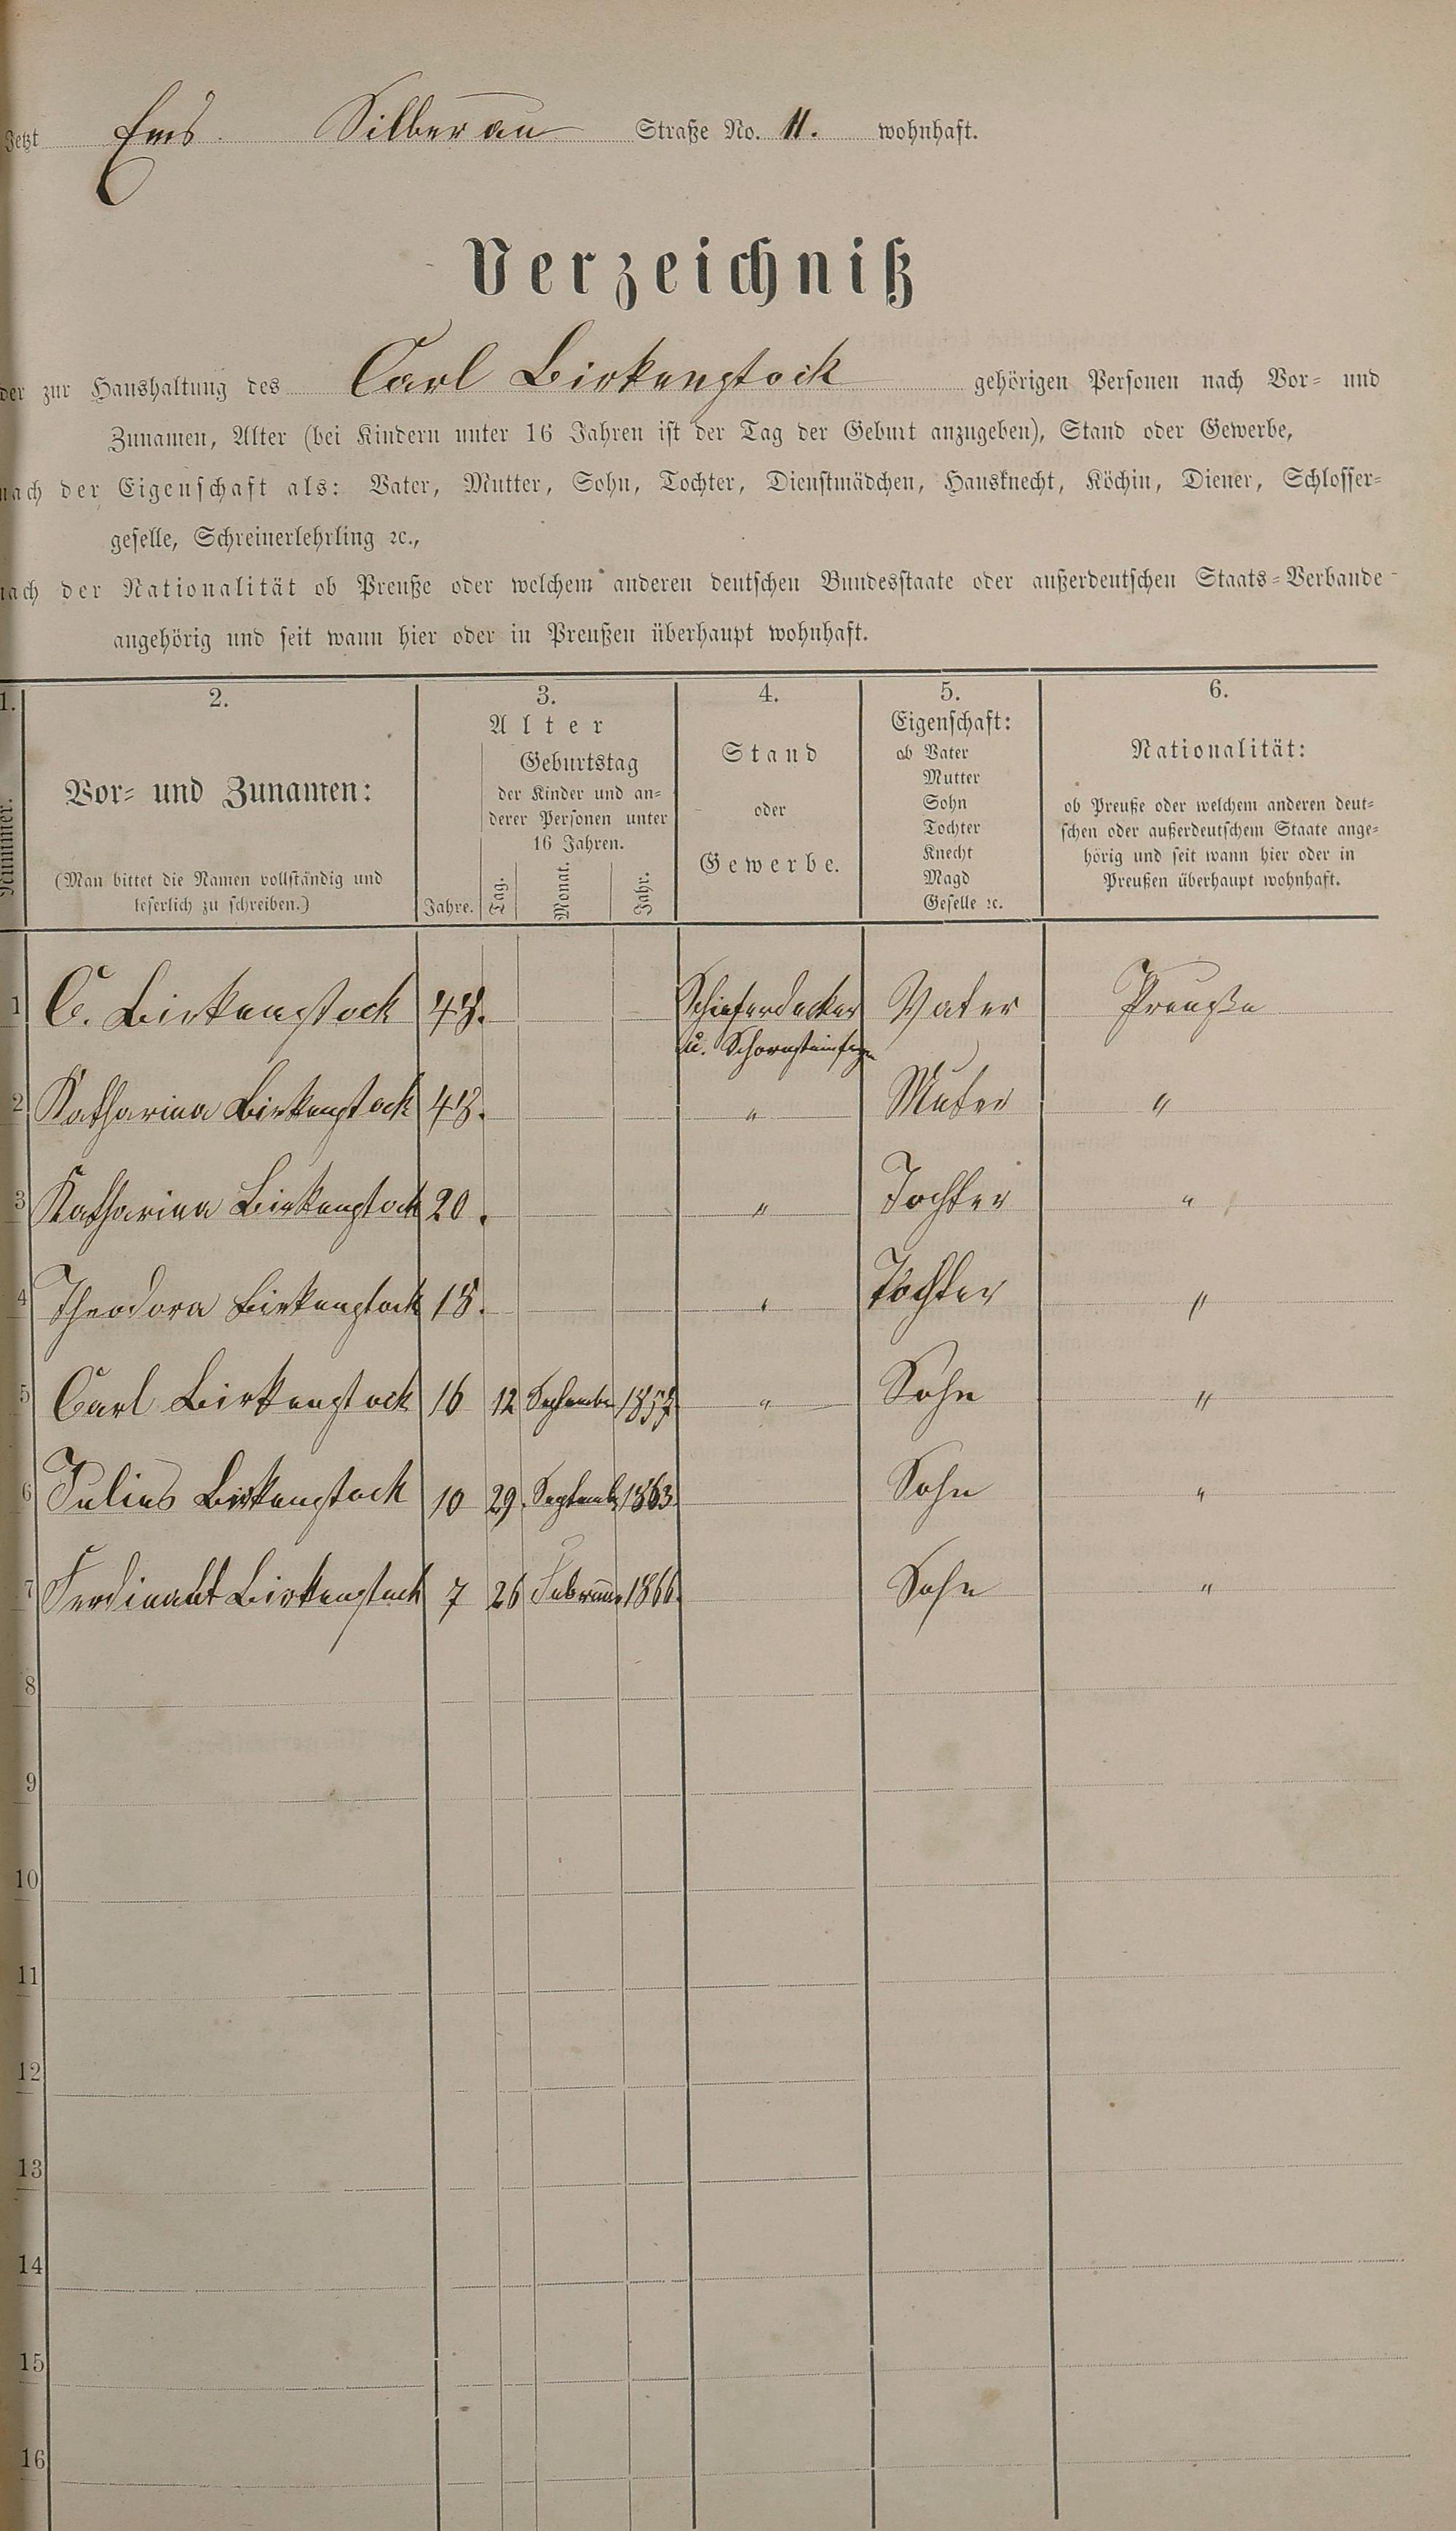 Jetzt Ems. Silberau Straße No. 11. wohnhaft.
Verzeichniß
der zur Haushaltung des Carl Birkenstock gehörigen Personen nach Vor- und
Zunamen, Alter (bei Kindern unter 16 Jahren ist der Tag der Geburt anzugeben), Stand oder Gewerbe,
nach der Eigenschaft als: Vater, Mutter, Sohn, Tochter, Dienstmädchen, Hausknecht, Köchin, Diener, Schlosser-
geselle, Schreinerlehrling ꝛc.,
nach der Nationalität ob Preuße oder welchem anderen deutschen Bundesstaate oder außerdeutschen Staats-Verbande
angehörig und seit wann hier oder in Preußen überhaupt wohnhaft.
1.
Nummer.
2.
Vor- und Zunamen:
(Man bittet die Namen vollständig und
leserlich zu schreiben.)
3.
Alter
Jahre.
Geburtstag
der Kinder und an-
derer Personen unter
16 Jahren.
Tag.
Monat.
Jahr.
4.
Stand
oder
Gewerbe.
5.
Eigenschaft:
ob Vater
Mutter
Sohn
Tochter
Knecht
Magd
Geselle ꝛc.
6.
Nationalität:
ob Preuße oder welchem anderen deut-
schen oder außerdeutschem Staate ange-
hörig und seit wann hier oder in
Preußen überhaupt wohnhaft.
1 C. Birkenstock Schieferdecker Vater Preuße
u. Schornsteinfeger
2 Katharina Birkenstock " Muter "
3 Katharina Birkenstock 20. " Tochter "
4 Theodora Birkenstock 18. " Tochter "
5 Carl Birkenstock 16 12 September 1857 " Sohn "
6 Julius Birkenstock 10 29. September 1863 Sohn "
7 Ferdinandt Birkenstock 7 26 Februar 1866. Sohn "
8
9
10
11
12
13
14
15
16